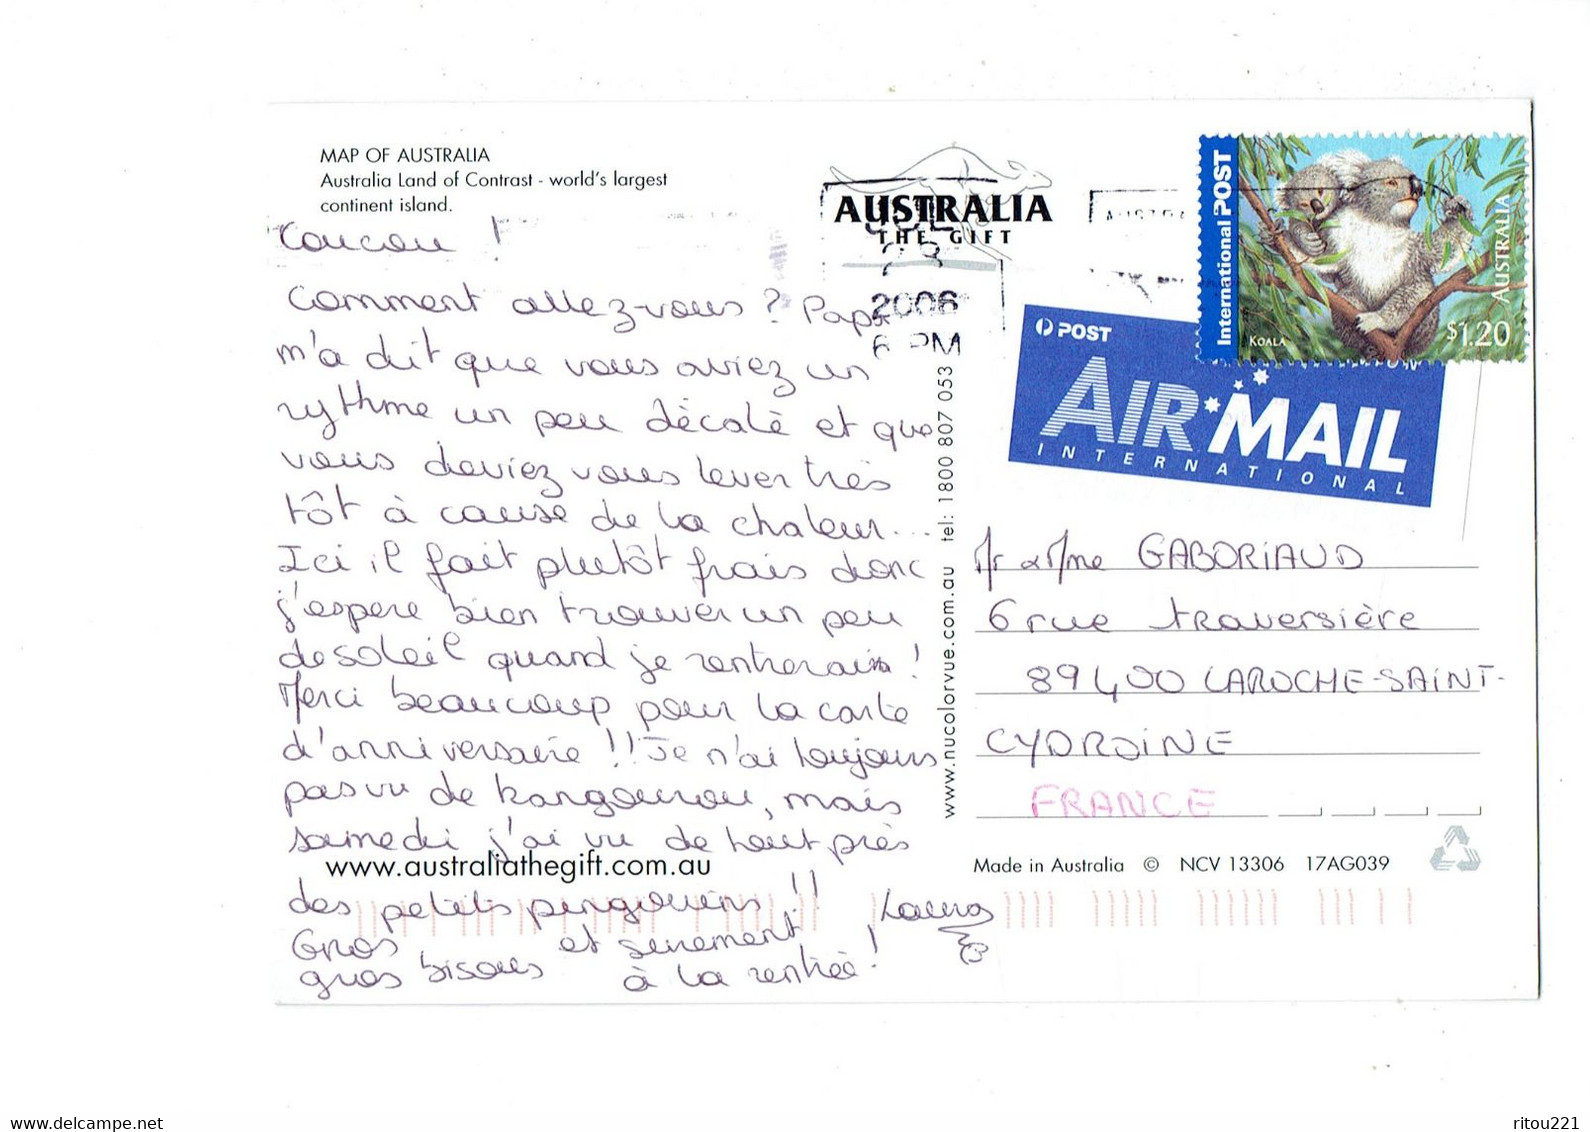 MAP OF AUSTRALIA
Australia Land of Contrast - world's largest
continent island.
Coucou !
Comment allez-vous ? Papa
m'a dit que vous aviez un
rythme un peu décalé et que
vous deviez vous lever très
tôt à cause de la chaleur...
Ici il fait plutôt frais donc
j'espere bien trouver un peu
de soleil quand je rentrerais !
Merci beaucoup pour la carte
d'anniversaire !! Je n'ai toujours
pas vu de kangourou, mais
samedi j'ai vu de tout près
www.australiathegift.com.au
des petits pingouins !!
Gros et surement
gros bisous à la rentrée !
Laura
AUSTRALIA
THE GIFT
JUL
2006
6 PM
www.nucolorvue.com.au tel: 1800 807 053
International POST
KOALA
AUSTRALIA
$1.20
POST
AIR MAIL
INTERNATIONAL
Mr & Mme GABORIAUD
6 rue traversière
89400 LAROCHE-SAINT-
CYDROINE
FRANCE
Made in Australia © NCV 13306 17AG039
www.delcampe.net
ritou221